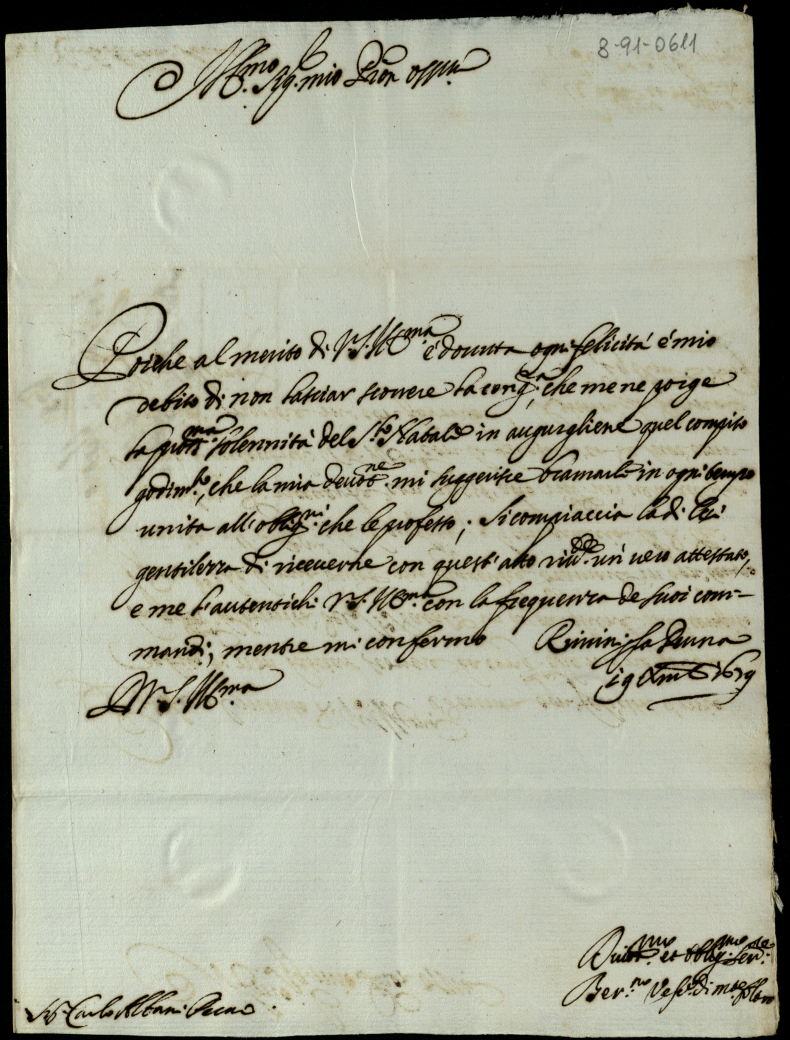 8-91-0611
Ill.mo Sig. mio Pron oss.mo
Poiche al merito di V.S. Ill.ma é douuta ogni felicitá é mio
debito di non lasciar scorrere la cong.ra, che me ne porge
la pross.ma solennitá del S.to Natale in augurgliene quel compito
godim.to, che la mia deuot.ne mi suggerisce bramarle in ogni tempo
unita all'oblig.ni che le professo; si compiaccia la di lei
gentilezza di riceuerne con quest'atto un uero attestato,
e me l'autentichi V.S. Ill.ma con la frequenza de suoi com-
mandi; mentre mi confermo Rimini
19 Xmbre 1679
V.S. Ill.ma
Diuot.mo et oblig.mo ser.re
Ber.no
Sig. Carlo Albani